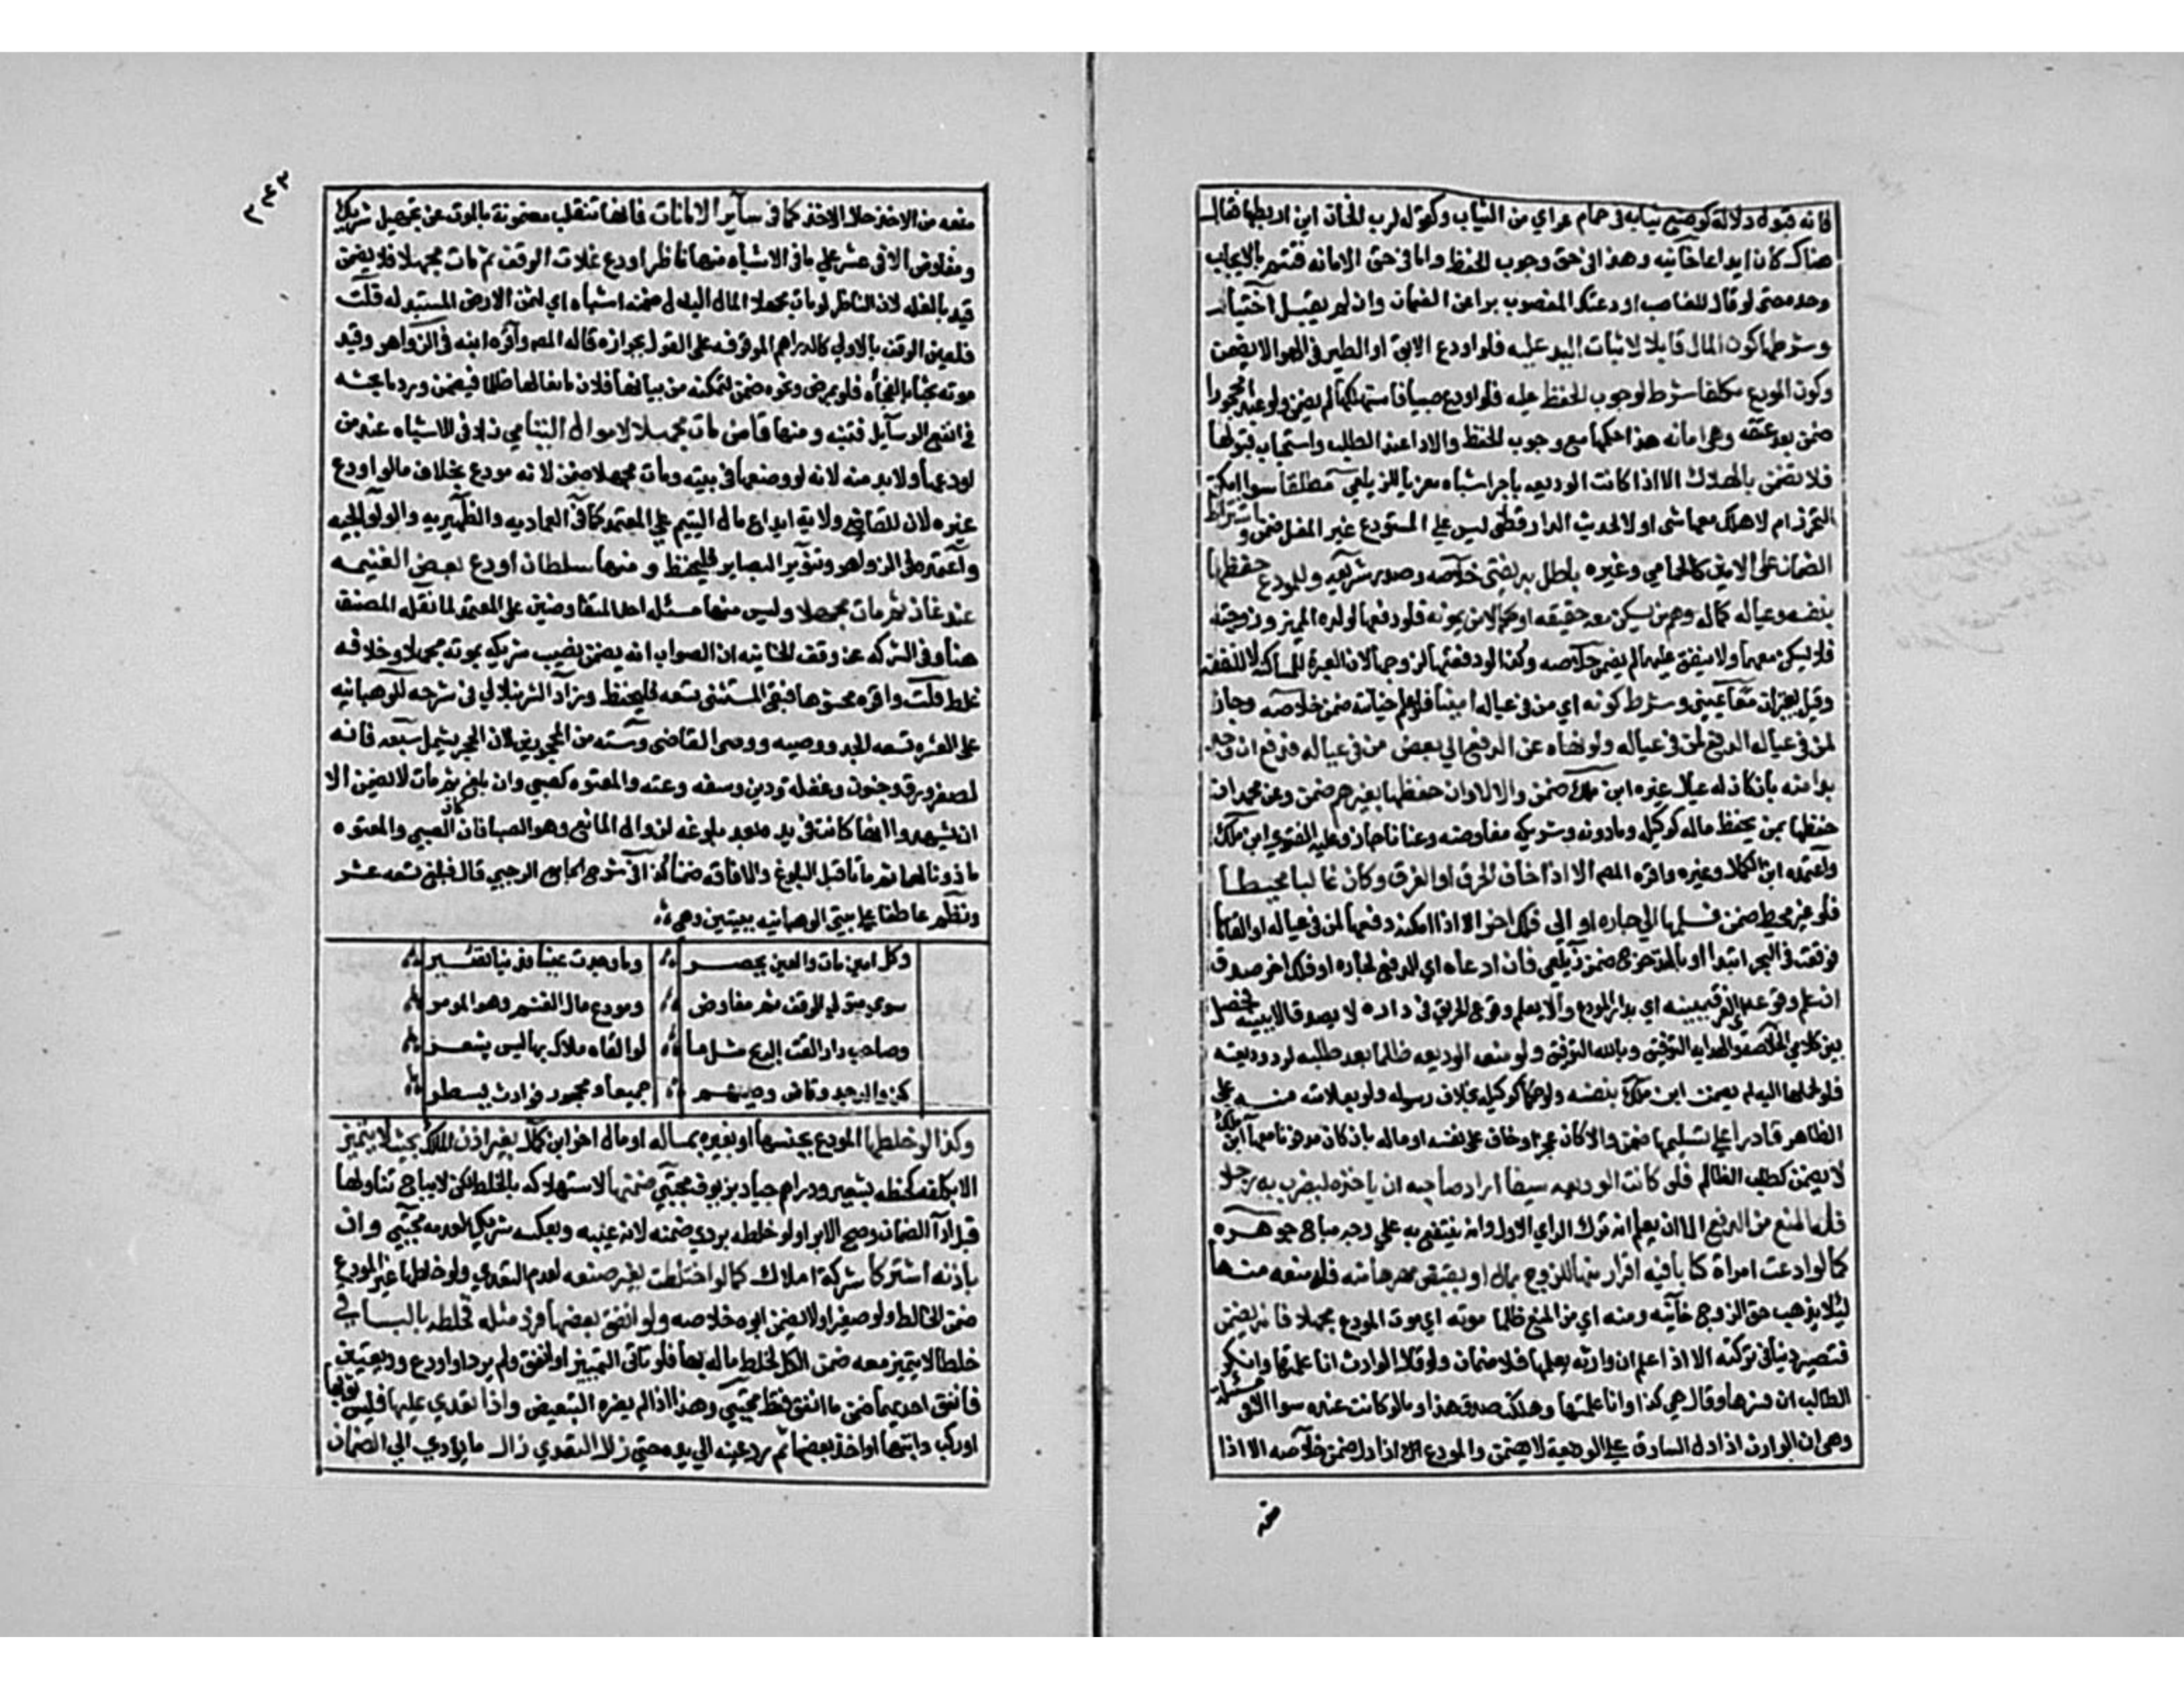 فانه قبول دلالة كوضع ثيابه في حمام مراي من الثياب وكقوله لرب الخان اين اربطها فقال
هناك كان ايداعا خانيه وهذا في حق وجوب الحفظ واما في حق الامانه فتتم بالايجاب
وحده حتى لو قال للغاصب اودعتك المغصوب برا عن الضمان وان لم يقبل اختيار
وشرطها كون المال قابلا لاثبات اليد عليه فلو اودع الابق او الطير في الهوا لا يضمن
وكون المودع مكلفا شرط لوجوب الحفظ عليه فلو اودع صبيا فاستهلكها لم يضمن ولو عبدا محجورا
ضمن بعد عتقه وهي امانه هذا حكمها مع وجوب الحفظ والادا عند الطلب واستحباب قبولها
فلا تضمن بالهلاك الا اذا كانت الوديعه باجر اشباه معزيا للزيلعي مطلقا سوا امكن
التحرز ام لا هلك معها شي او لا لحديث الدار قطني ليس على المستودع غير المغل ضمن واشتراط
الضمان على الامين كالحمامي وغيره باطل به يفتى خلاصه وصدر شريعه وللمودع حفظها
بنفسه وعياله كماله وهم من يسكن معه حقيقه او حكما لا من يمونه فلو دفعها لولده المميز وزوجته
فلا يسكن معها ولا ينفق عليها لم يضمن خلاصه وكذا لو دفعتها لزوجها لان العبرة للمساكنه لا للنفقه
وقيل يعتبران معا عيني وشرط كونه اي من في عياله امينا فلو علم خيانته ضمن خلاصه وجاز
لمن في عياله الدفع لمن في عياله ولو نهاه عن الدفع الي بعض من في عياله فدفع ان وجد
بدا منه بان كان له عيال غيره ابن ملك ضمن والا لا وان حفظها بغيرهم ضمن وعن محمد ان
حفظها بمن يحفظ ماله كوكيل وماذونه وشريكه مفاوضه وعنانا جاز وعليه الفتوي ابن ملك
واعتمده ابن الكمال وغيره واقره المص الا اذا خاف الحرق او الغرق وكان غالبا محيطا
فلو غير محيط ضمن فسلمها الي جاره او الي فلك اخر الا اذا امكنه دفعها لمن في عياله او القاها
فوقعت في البحر ابتدا او بالتدحرج ضمن زيلعي فان ادعاه اي الدفع لجاره او فلك اخر صدق
ان علم وقوعه اي الغرق ببينه اي بدار المودع والا يعلم وقوع الحرق في داره لا يصدق الا ببينه فحصل
بين كلامي الخلاصه والهدايه التوفيق وبالله التوفيق ولو منعه الوديعه ظالما بعد طلبه لرد وديعته
فلو لحملها اليه لم يضمن ابن ملك بنفسه ولو حكما كوكيله بخلاف رسوله ولو بعلامته منه على
الظاهر قادرا على تسليمها ضمن والا كان عجز او خاف على نفسه او ماله بان كان مدفونا معها ابن ملك
لا يضمن كطلب الظالم فلو كانت الوديعه سيفا اراد صاحبه ان ياخذه ليضرب به رجلا
فله المنع من الدفع الا ان يعلم انه ترك الراي الاول وانه ينتفع به علي وجه مباح جوهره
كما لو ادعت امراة كتابا فيه اقرار منها للزوج بمال او بقبض مهرها منه فله منعه منها
ليلا يذهب حق الزوج خانيه ومنه اي من المنع ظلما موته اي موت المودع مجهلا فانه يضمن
فتصير دينا في تركته الا اذا علم ان وارثه يعلمها فلا ضمان ولو قال الوارث انا علمتها وانكر
الطالب ان فسرها وقال هي كذا وانا علمتها وهلكت صدق هذا وما لو كانت عنده سوا الا في مسئلة
وهي ان الوارث اذا دل السارق علي الوديعة لا يضمن والمودع اذا دل ضمن خلاصه الا اذا
منعه
٣٤٣
منعه من الاخذ حال الاخذ كما في ساير الامانات فانها تنقلب مضمونة بالموت عن تجهيل شريك
ومفاوض الا في عشر علي ما في الاشباه منها ناظر اودع غلات الوقف ثم مات مجهلا فلا يضمن
قيد بالغله لان الناظر لو مات مجهلا لمال البدل ضمنه اشباه اي لثمن الارض المستبدله قلت
فلعين الوقف بالاولي كالدراهم الموقوفه على القول بجوازه قاله المص واقره ابنه في الزواهر وقيد
موته بحثا بالفجاه فلو بمرض ونحوه ضمن لتمكنه من بيانها فلان مانعا لها ظلما فيضمن ورد ما بحثه
في انفع الوسايل فتنبه ومنها قاض مات مجهلا لاموال اليتامي زاد في الاشباه عند من
اودعها ولا بد منه لانه لو وضعها في بيته ومات مجهلا ضمن لانه مودع بخلاف ما لو اودع
غيره لان للقاضي ولاية ايداع مال اليتيم علي المعتمد كما في العماديه والظهيريه والولوالجيه
واعتمده في الزواهر وتنوير البصاير فليحفظ ومنها سلطان اودع بعض الغنيمه
عند غاز ثم مات مجهلا وليس منها مسئلة احد المتفاوضين على المعتمد لما نقله المصنف
هنا وفي الشركه عن وقف الخانيه ان الصواب انه يضمن نصيب شريكه بموته مجهلا وخلافه
غلط قلت واقره محشوها فبقي المستثنى تسعه فليحفظ وزاد الشرنبلالي في شرحه للوهبانيه
على العشره تسعه الجد ووصيه ووصى القاضي وسته من المحجورين لان الحجر يشمل سبعه فانه
لصغر ورق وجنون وغفلة ودين وسفه وعته والمعتوه كصبي وان بلغ ثم مات لا يضمن الا
ان يشهدوا انها كانت في يده بعد بلوغه لزوال المانع وهو الصبا فان كان الصبي والمعتوه
ماذونا لهما ثم ماتا قبل البلوغ والافاقه ضمنا كذا في شرح الجامع الوجيز قال فبلغ تسعه عشر
ونظم عاطفا علي بيتي الوهبانيه ببيتين وهي
وكل امين مات والعين يحصر وما وجدت عينا فدينا تصير
سوي متولي الوقف ثم مفاوض ومودع مال الغنم وهو المومر
وصاحب دار القت الريح مثل ما لو القاه ملاك بها ليس يشعر
كذا والد جد وقاض وصيهم جميعا ومحجور فوارث يسطر
وكذا لو خلطها المودع بجنسها او بغيره بماله او مال اخر ابن كمال بغير اذن المالك بحيث لا يتميز
الا بكلفه كحنطه بشعير ودراهم جياد بزيوف مجتبي ضمنها لاستهلاكه بالخلط لكن لا يباح تناولها
قبل ادا الضمان وصح الابرا ولو خلطه بردي ضمنه لانه عيبه وبعكسه شريك لعدمه مجتبي وان
باذنه اشتركا شركة املاك كما لو اختلطت بغير صنعه لعدم التعدي ولو خلطها غير المودع
ضمن الخالط ولو صغيرا ولا يضمن ابوه خلاصه ولو انفق بعضها فرد مثله فخلطه بالباقي
خلطا لا يتميز معه ضمن الكل لخلط ماله بها فلو تاتى التمييز او انفق ولم يرد او اودع وديعتين
فانفق احديهما ضمن ما انفق فقط مجتبي وهذا اذا لم يضره التبعيض واذا تعدي عليها فلبس ثوبها
او ركب دابتها او اخذ بعضها ثم رد عينه الي يده حتى زال التعدي زال ما يودي الي الضمان